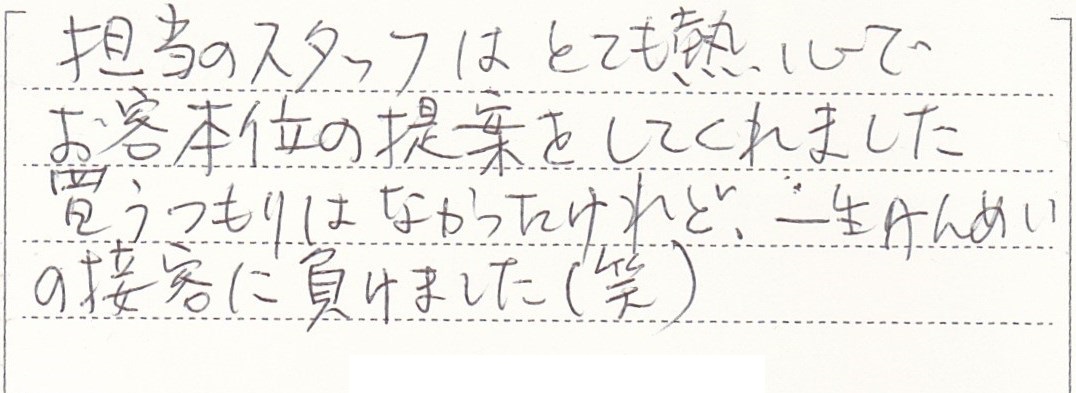 担当のスタッフはとても熱心で
お客本位の提案をしてくれました
買うつもりはなかったけれど、一生けんめい
の接客に負けました(笑)